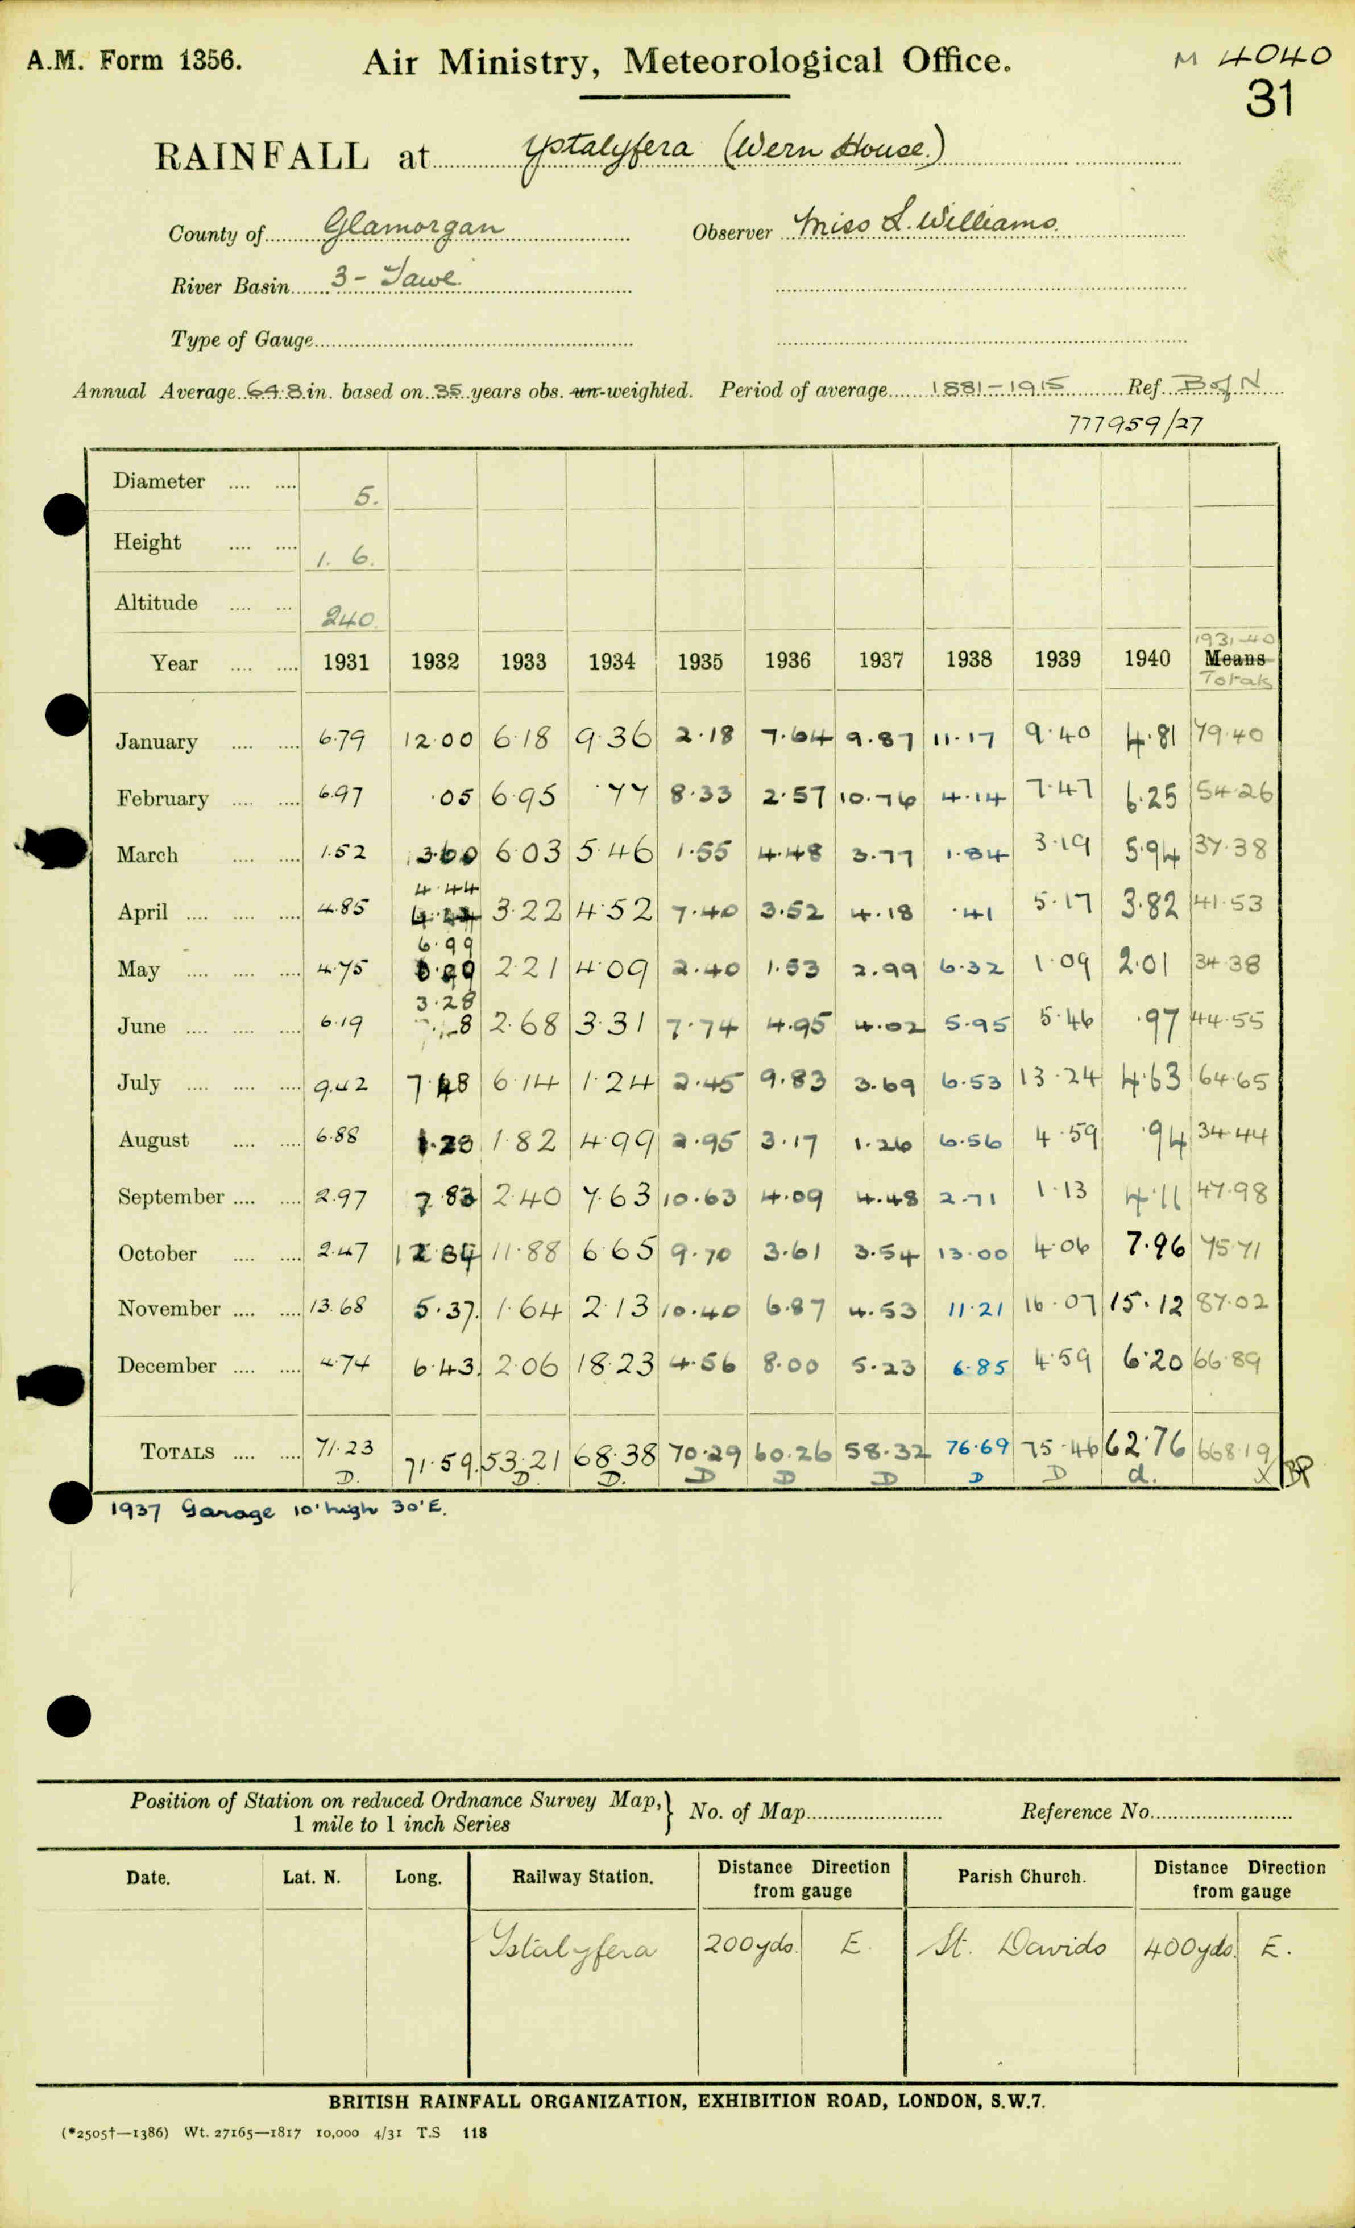 A.M. Form 1356.
Air Ministry, Meteorological Office.
M 4040
31
RAINFALL at Ystalyfera (Wern House.)
County of Glamorgan Observer Miss L. Williams.
River Basin 3 - Tawe
Type of Gauge
Annual Average 64.8 in. based on 35 years obs. un-weighted. Period of average 1881-1915 Ref. B of N
777959/27
Diameter 5.
Height 1. 6.
Altitude 240
1931-40
Year 1931 1932 1933 1934 1935 1936 1937 1938 1939 1940 Means
Totals
January 6.79 12.00 6.18 9.36 2.18 7.64 9.87 11.17 9.40 4.81 79.40
February 6.97 .05 6.95 .77 8.33 2.57 10.76 4.14 7.47 6.25 54.26
March 1.52 3.60 6.03 5.46 1.55 4.48 3.77 1.84 3.19 5.94 37.38
April 4.85 4.44 3.22 4.52 7.40 3.52 4.18 .41 5.17 3.82 41.53
May 4.75 6.99 2.21 4.09 2.40 1.53 2.99 6.32 1.09 2.01 34.38
June 6.19 3.28 2.68 3.31 7.74 4.95 4.02 5.95 5.46 .97 44.55
July 9.42 7.48 6.14 1.24 2.45 9.83 3.69 6.53 13.24 4.63 64.65
August 6.88 1.28 1.82 4.99 2.95 3.17 1.26 6.56 4.59 .94 34.44
September 2.97 7.83 2.40 7.63 10.63 4.09 4.48 2.71 1.13 4.11 47.98
October 2.47 12.84 11.88 6.65 9.70 3.61 3.54 13.00 4.06 7.96 75.71
November 13.68 5.37. 1.64 2.13 10.40 6.87 4.53 11.21 16.07 15.12 87.02
December 4.74 6.43. 2.06 18.23 4.56 8.00 5.23 6.85 4.59 6.20 66.89
TOTALS 71.23 71.59. 53.21 68.38 70.29 60.26 58.32 76.69 75.46 62.76 668.19
D. D. D. D D D D D d. X BP
1937 Garage 10' high 30' E.
Position of Station on reduced Ordnance Survey Map, 1 mile to 1 inch Series } No. of Map Reference No.
Date. Lat. N. Long. Railway Station. Distance Direction from gauge Parish Church. Distance Direction from gauge
Ystalyfera 200yds. E. St. Davids 400yds. E.
BRITISH RAINFALL ORGANIZATION, EXHIBITION ROAD, LONDON, S.W.7.
(*2505†—1386) Wt. 27165—1817 10,000 4/31 T.S 118